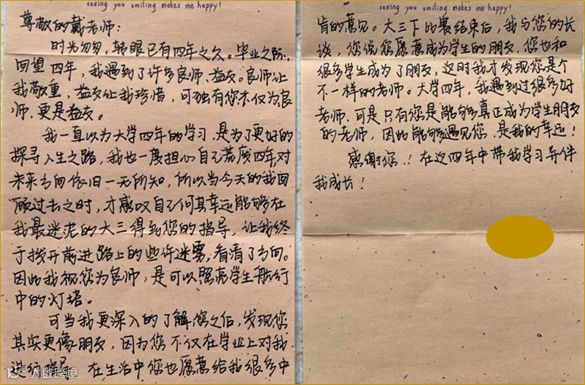 seeing you smiling makes me happy!
尊敬的戴老师:
时光匆匆,转眼已有四年之久。毕业之际,
回望四年,我遇到了许多良师、益友。良师让
我敬重,益友让我珍惜,可独有您不仅为良
师,更是益友。
我一直以为大学四年的学习,是为了更好的
探寻人生之路,我也一度担心自己荒废四年对
未来方向依旧一无所知,所以当今天的我回
顾过去之时,才感叹自己何其幸运能够在
我最迷茫的大三得到您的指导,让我终
于拨开前进路上的些许迷雾,看清了方向。
因此我视您为良师,是可以照亮学生航行
中的灯塔。
可当我更深入的了解您之后,发现您
其实更像朋友,因为您不仅在学业上对我
进行指导,在生活中您也愿意给我很多中
seeing you smiling makes me happy!
肯的意见。大三下比赛结束后,我与您的长
谈,您说您愿意成为学生的朋友,您也和
很多学生成为了朋友,这时我才发现您是个
不一样的老师。大学四年,我遇到过很多好
老师,可是只有您是能够真正成为学生朋友
的老师,因此能够遇见您,是我的幸运!
感谢您!!在这四年中带我学习并伴
我成长!